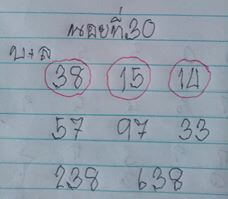 หอยที่30
บ+ล
38 15 14
57 97 33
238 638